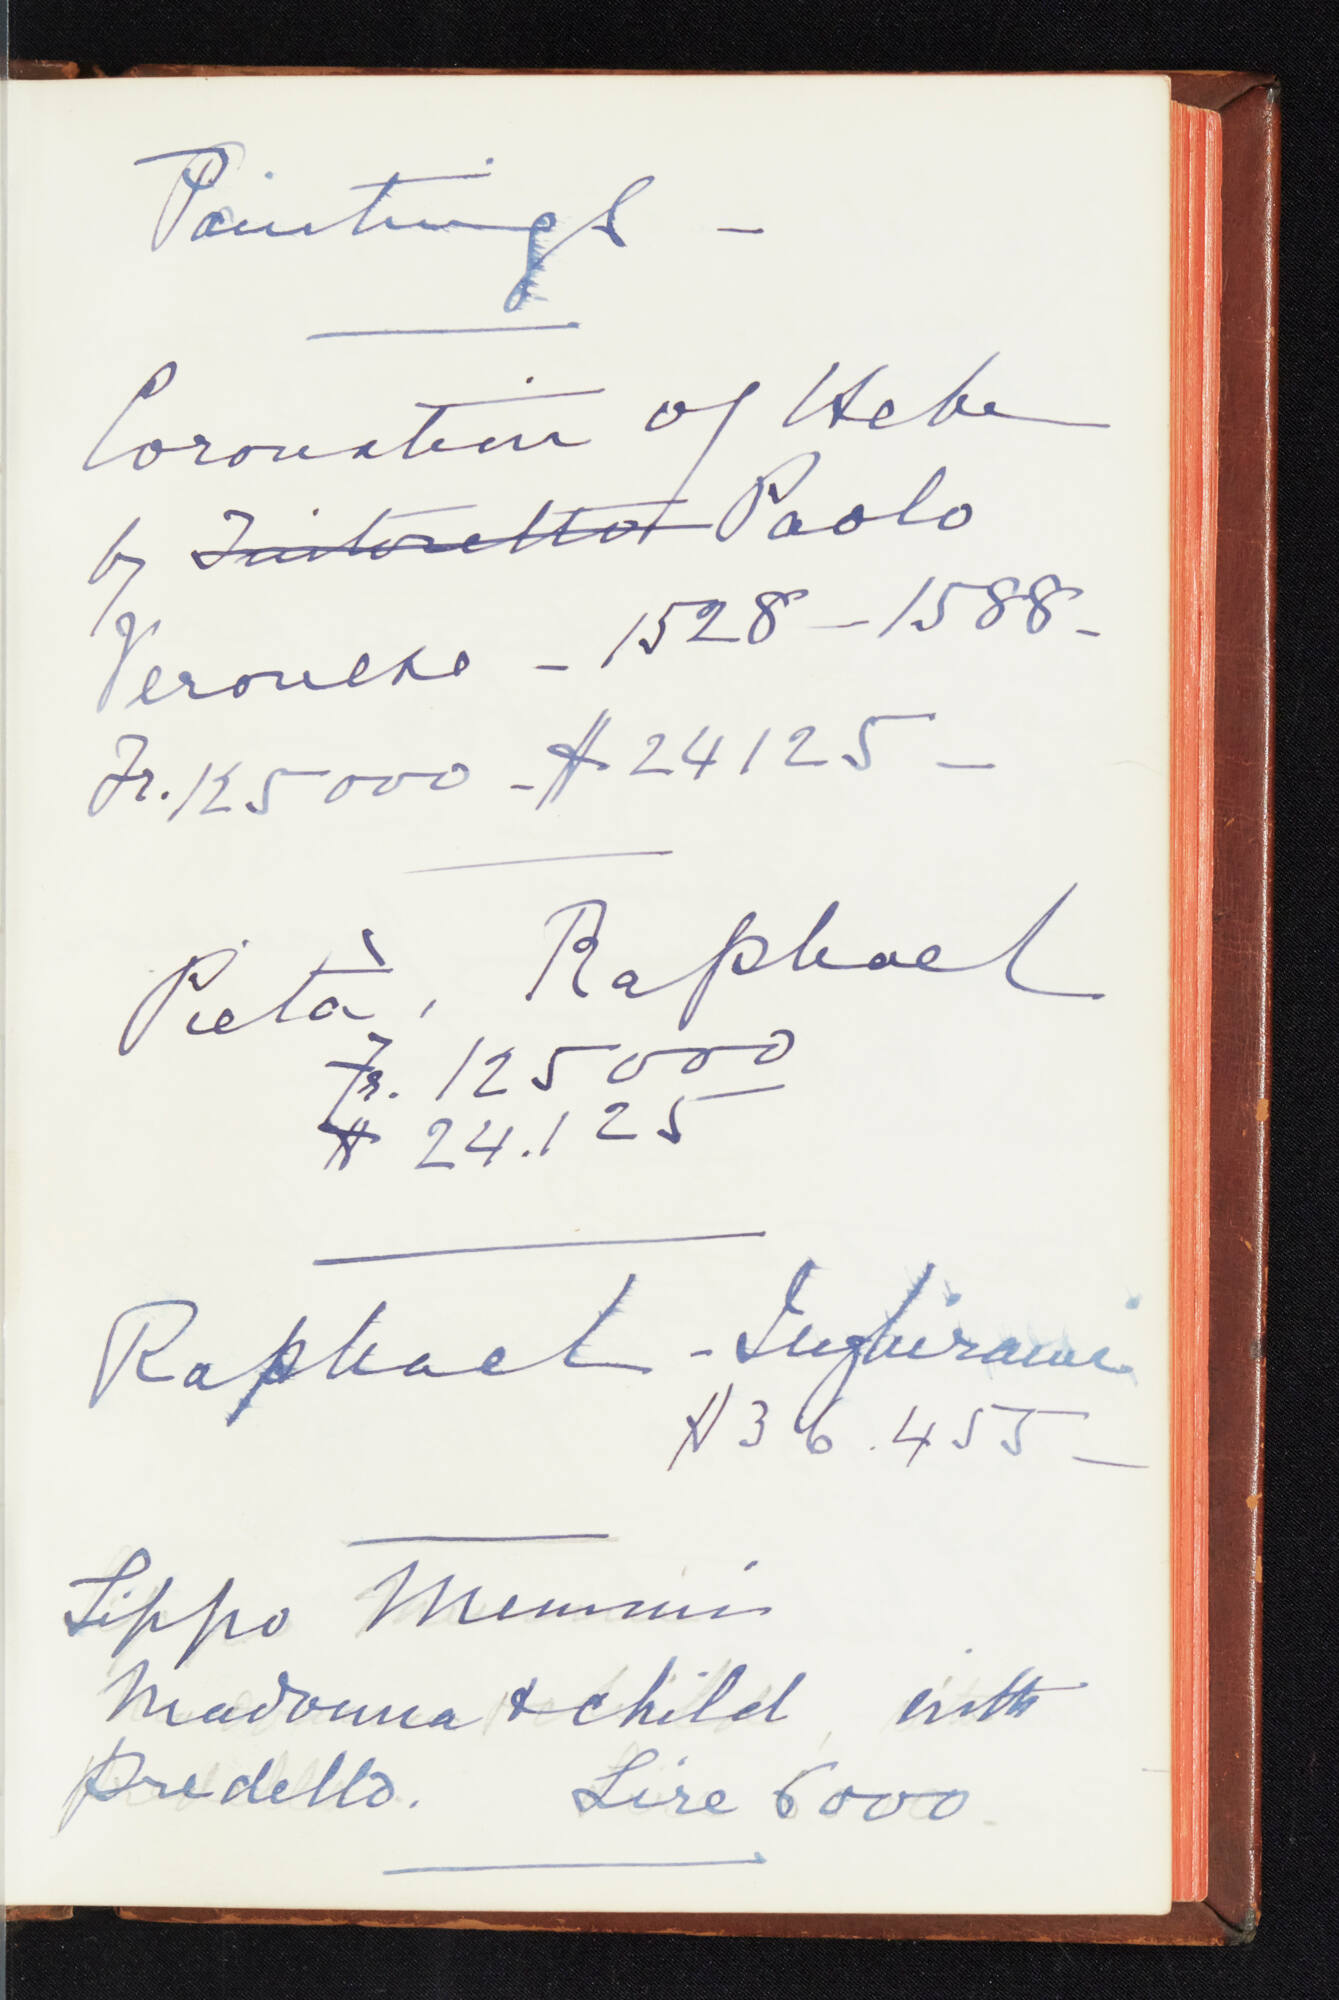 Paintings -
Coronation of Hebe
by Tintoretto Paolo
Veronese - 1528 - 1588 -
Fr. 125000 - $ 24125 -
Pietà, Raphael
Fr. 125000
$ 24.125
Raphael - Inghirami
$ 36.455 -
Lippo Memmi
Madonna & child, with
predella. Lire 6000.